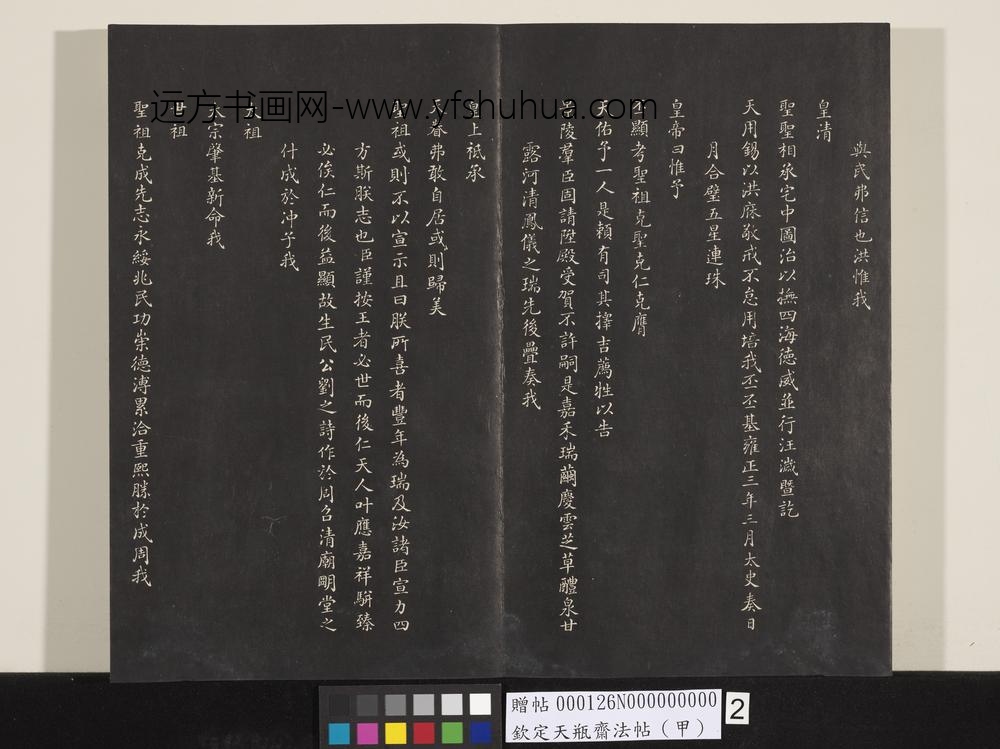 與民弗信也洪惟我
皇清
聖聖相承宅中圖治以撫四海德威並行汪濊暨訖
天用錫以洪庥敬戒不怠用培我丕丕基雍正三年三月太史奏日
月合璧五星連珠
皇帝曰惟予
丕顯考聖祖克聖克仁克膺
天佑予一人是賴有司其擇吉薦牲以告
景陵羣臣固請陞殿受賀不許嗣是嘉禾瑞繭慶雲芝草醴泉甘
露河清鳳儀之瑞先後疊奏我
皇上祗承
天眷弗敢自居或則歸美
聖祖或則不以宣示且曰朕所喜者豐年為瑞及汝諸臣宣力四
方斯朕志也臣謹按王者必世而後仁天人叶應嘉祥駢臻
必俟仁而後益顯故生民公劉之詩作於周召清廟明堂之
什成於沖子我
太祖
太宗肇基新命我
世祖
聖祖克成先志永綏兆民功崇德溥累洽重熙勝於成周我
远方书画网-www.yfshuhua.com
贈帖 000126N000000000
欽定天瓶齋法帖（甲）
2